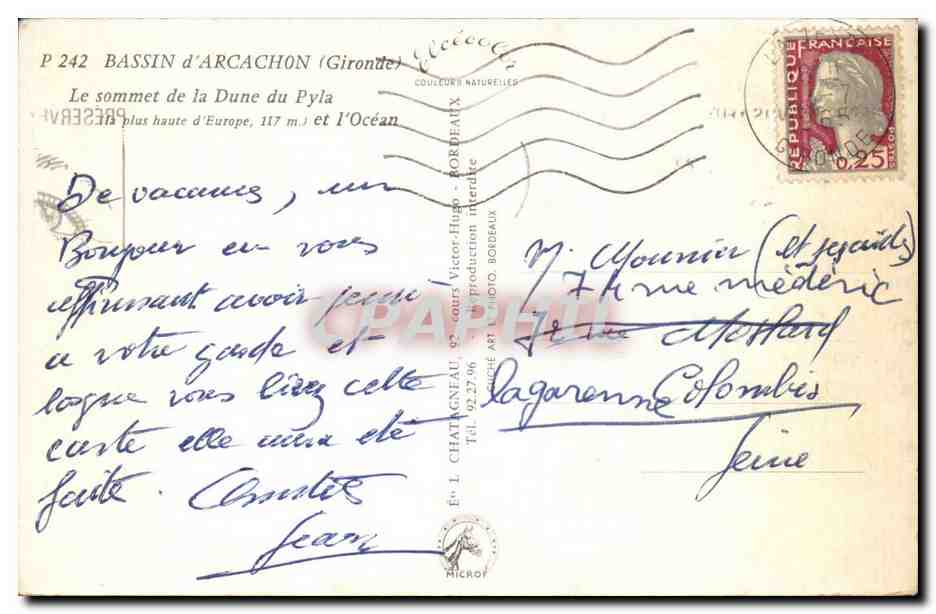 P 242 BASSIN d'ARCACHON (Gironde)
Le sommet de la Dune du Pyla
(la plus haute d'Europe, 117 m.) et l'Océan
COULEURS NATURELLES
RÉPUBLIQUE FRANÇAISE
0,25
GIRONDE
PRÉSERVE
De vacances, un
Bonjour en vous
avoir pensé
a votre garde et
lorsque vous lirez cette
carte elle aura été
faite. Amitiés
Jean
Éts L. CHATAGNEAU, 92, cours Victor-Hugo - BORDEAUX
Tél. 92.27.96 - Reproduction interdite
CLICHÉ ART PHOTO, BORDEAUX
M. Mounier (et
74 rue médéric
lagarenne Colombes
Seine
CPAPHIL
MICROF